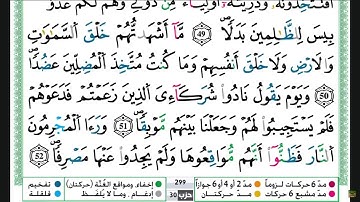 أَفَتَتَّخِذُونَهُۥ وَذُرِّيَّتَهُۥٓ أَوْلِيَآءَ مِن دُونِى وَهُمْ لَكُمْ عَدُوٌّۢ
بِئْسَ لِلظَّٰلِمِينَ بَدَلًا ٤٩ مَّآ أَشْهَدتُّهُمْ خَلْقَ ٱلسَّمَٰوَٰتِ
وَٱلْأَرْضِ وَلَا خَلْقَ أَنفُسِهِمْ وَمَا كُنتُ مُتَّخِذَ ٱلْمُضِلِّينَ عَضُدًا ٥٠
وَيَوْمَ يَقُولُ نَادُوا۟ شُرَكَآءِىَ ٱلَّذِينَ زَعَمْتُمْ فَدَعَوْهُمْ
فَلَمْ يَسْتَجِيبُوا۟ لَهُمْ وَجَعَلْنَا بَيْنَهُم مَّوْبِقًا ٥١ وَرَءَا ٱلْمُجْرِمُونَ
ٱلنَّارَ فَظَنُّوٓا۟ أَنَّهُم مُّوَاقِعُوهَا وَلَمْ يَجِدُوا۟ عَنْهَا مَصْرِفًا ٥٢
مدّ 6 حركات لزوماً مدّ 2 أو 4 أو 6 جوازاً 299 إخفاء، ومواقع الغُنَّة (حركتان) تفخيم
مدّ مشبع 6 حركات مدّ حركتان حزب 30 إدغام، وما لا يُلفَظ قلقلة